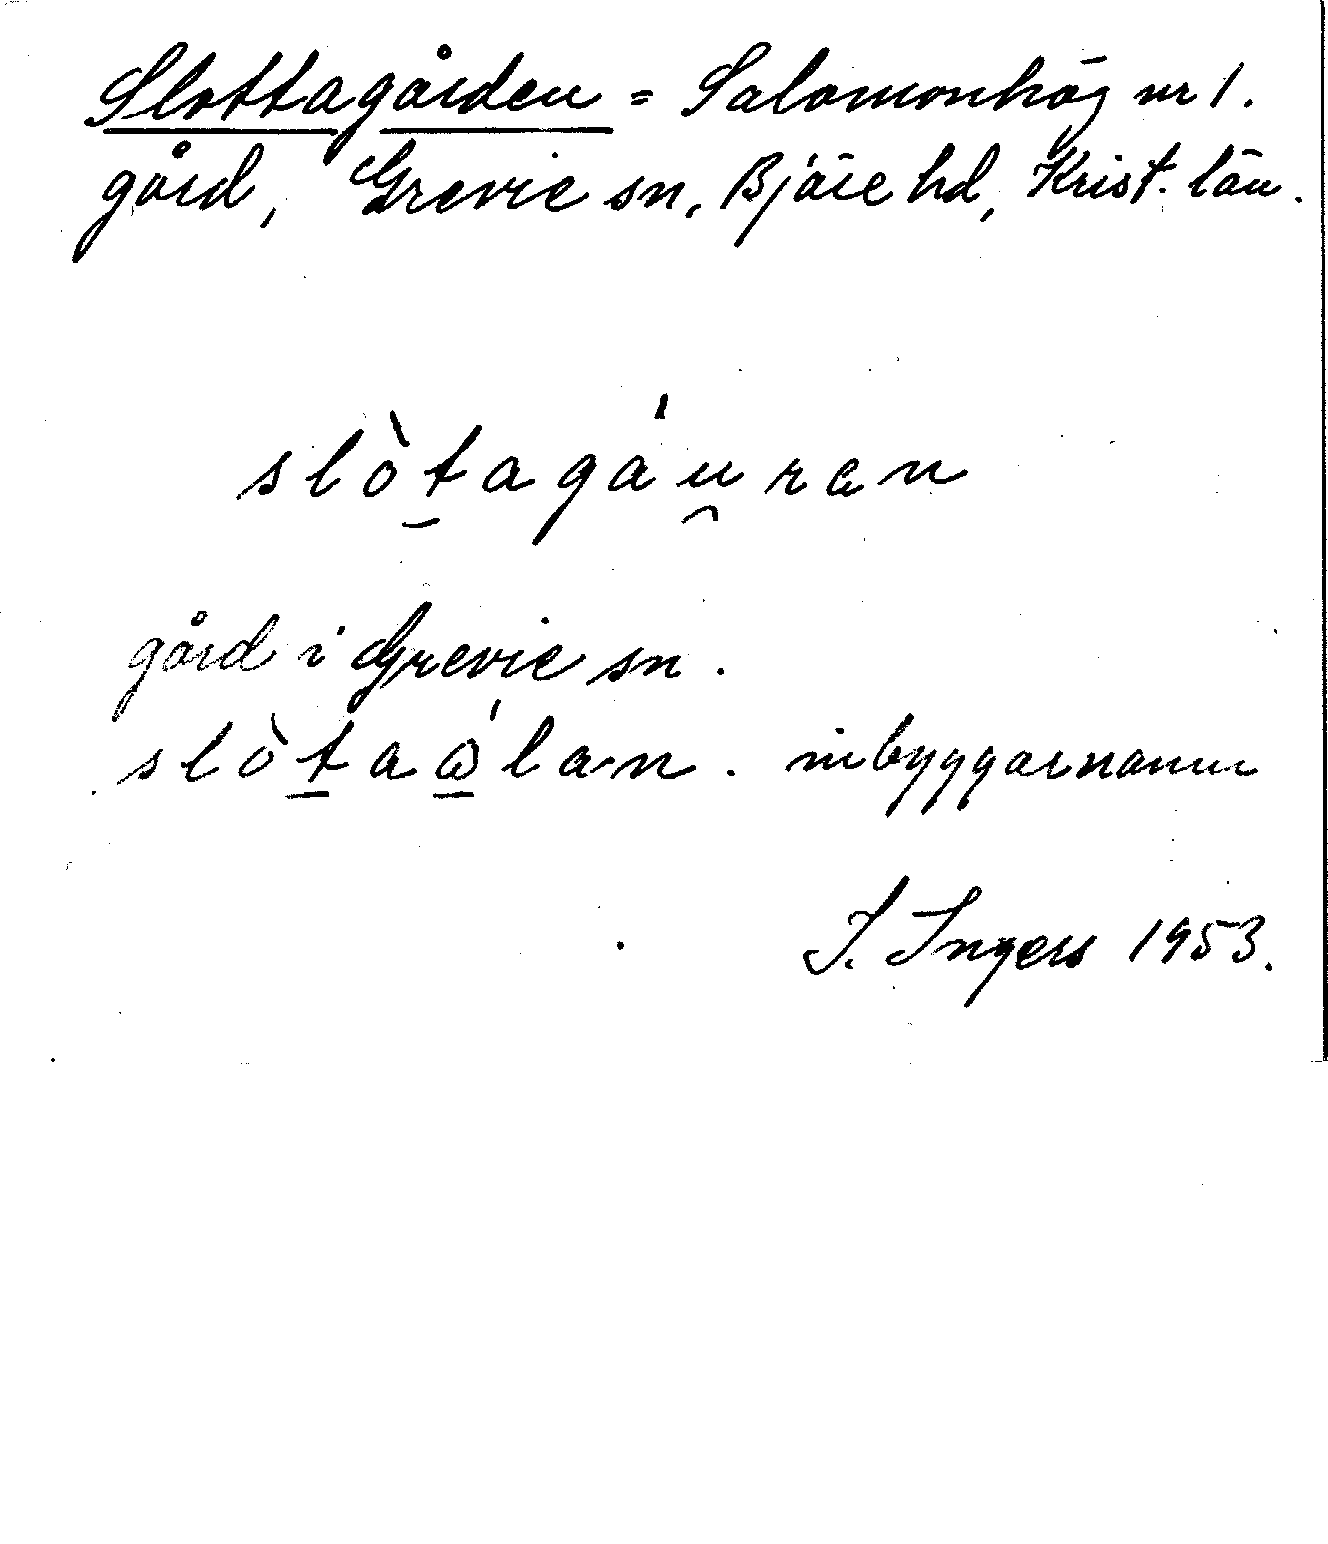 Slottagården = Salomonhög nr 1.
gård, Grevie sn, Bjäre hd, Krist. län.
slòt̲agáu̯ræn
gård i Grevie sn.
slòt̲aώ̲lan. inbyggarnamn
I. Ingers 1953.